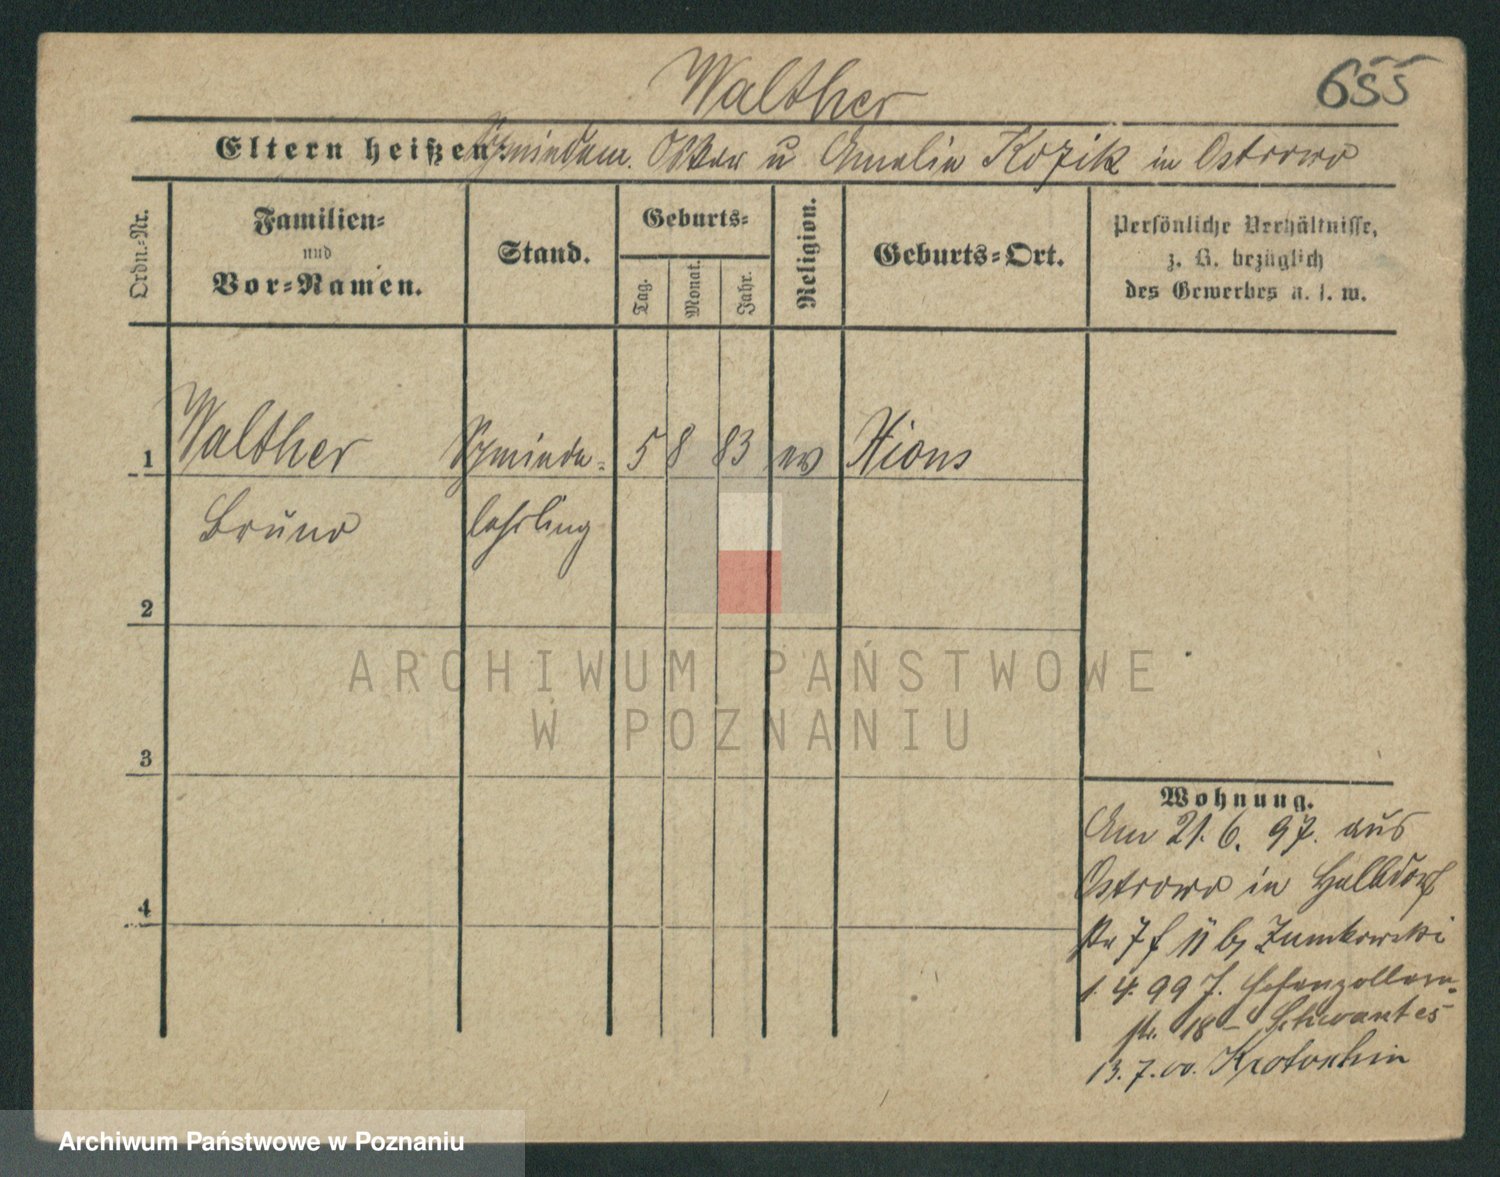 Walther
655
Eltern heißen: Schmiedem. Oskar u Amalie Kozik in Ostrowo
Ordn.-Nr.
Familien-
und
Vor-Namen.
Stand.
Geburts-
Tag.
Monat.
Jahr.
Religion.
Geburts-Ort.
Persönliche Verhältnisse,
z. B. bezüglich
des Gewerbes u. s. w.
1 Walther Schmiede- 5 8 83 ev Xions
Bruno lehrling
2
3
4
Wohnung.
Am 21. 6. 97. aus
Ostrowo in Halbdorf
str 7 f II b/
1. 4. 99 J. Hohenzollern-
str. 18 - Schwantes
13. 7. 00. Krotoschin
ARCHIWUM PAŃSTWOWE
W POZNANIU
Archiwum Państwowe w Poznaniu